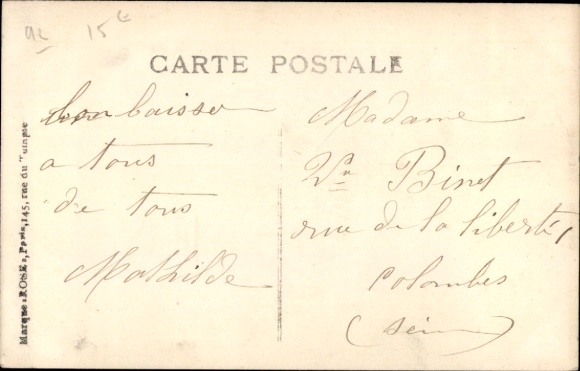 92 15€
CARTE POSTALE
bon baiser
a tous
de tous
Mathilde
Madame
Vve Binet
rue de la liberté,
colombes
(Seine)
Marque "ROSE", Paris, 145, rue du Temple